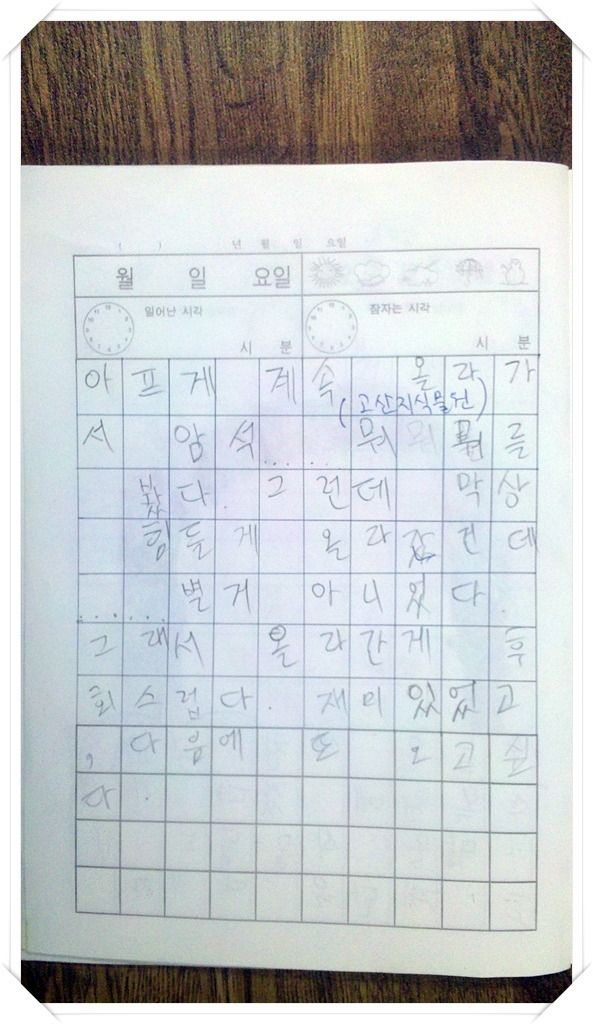 ( ) 년 월 일 요일
월 일 요일
일어난 시각 잠자는 시각
시 분 시 분
아프게 계속 올라가
(고산지식물원)
서 암석..... 뭐 뭐를
봤다. 그런데 막상
힘들게 올라갔런데
...... 별거 아니었다.
그래서 올라간게 후
회스럽다. 재미있었고
, 다음에 또 오고싶
다.